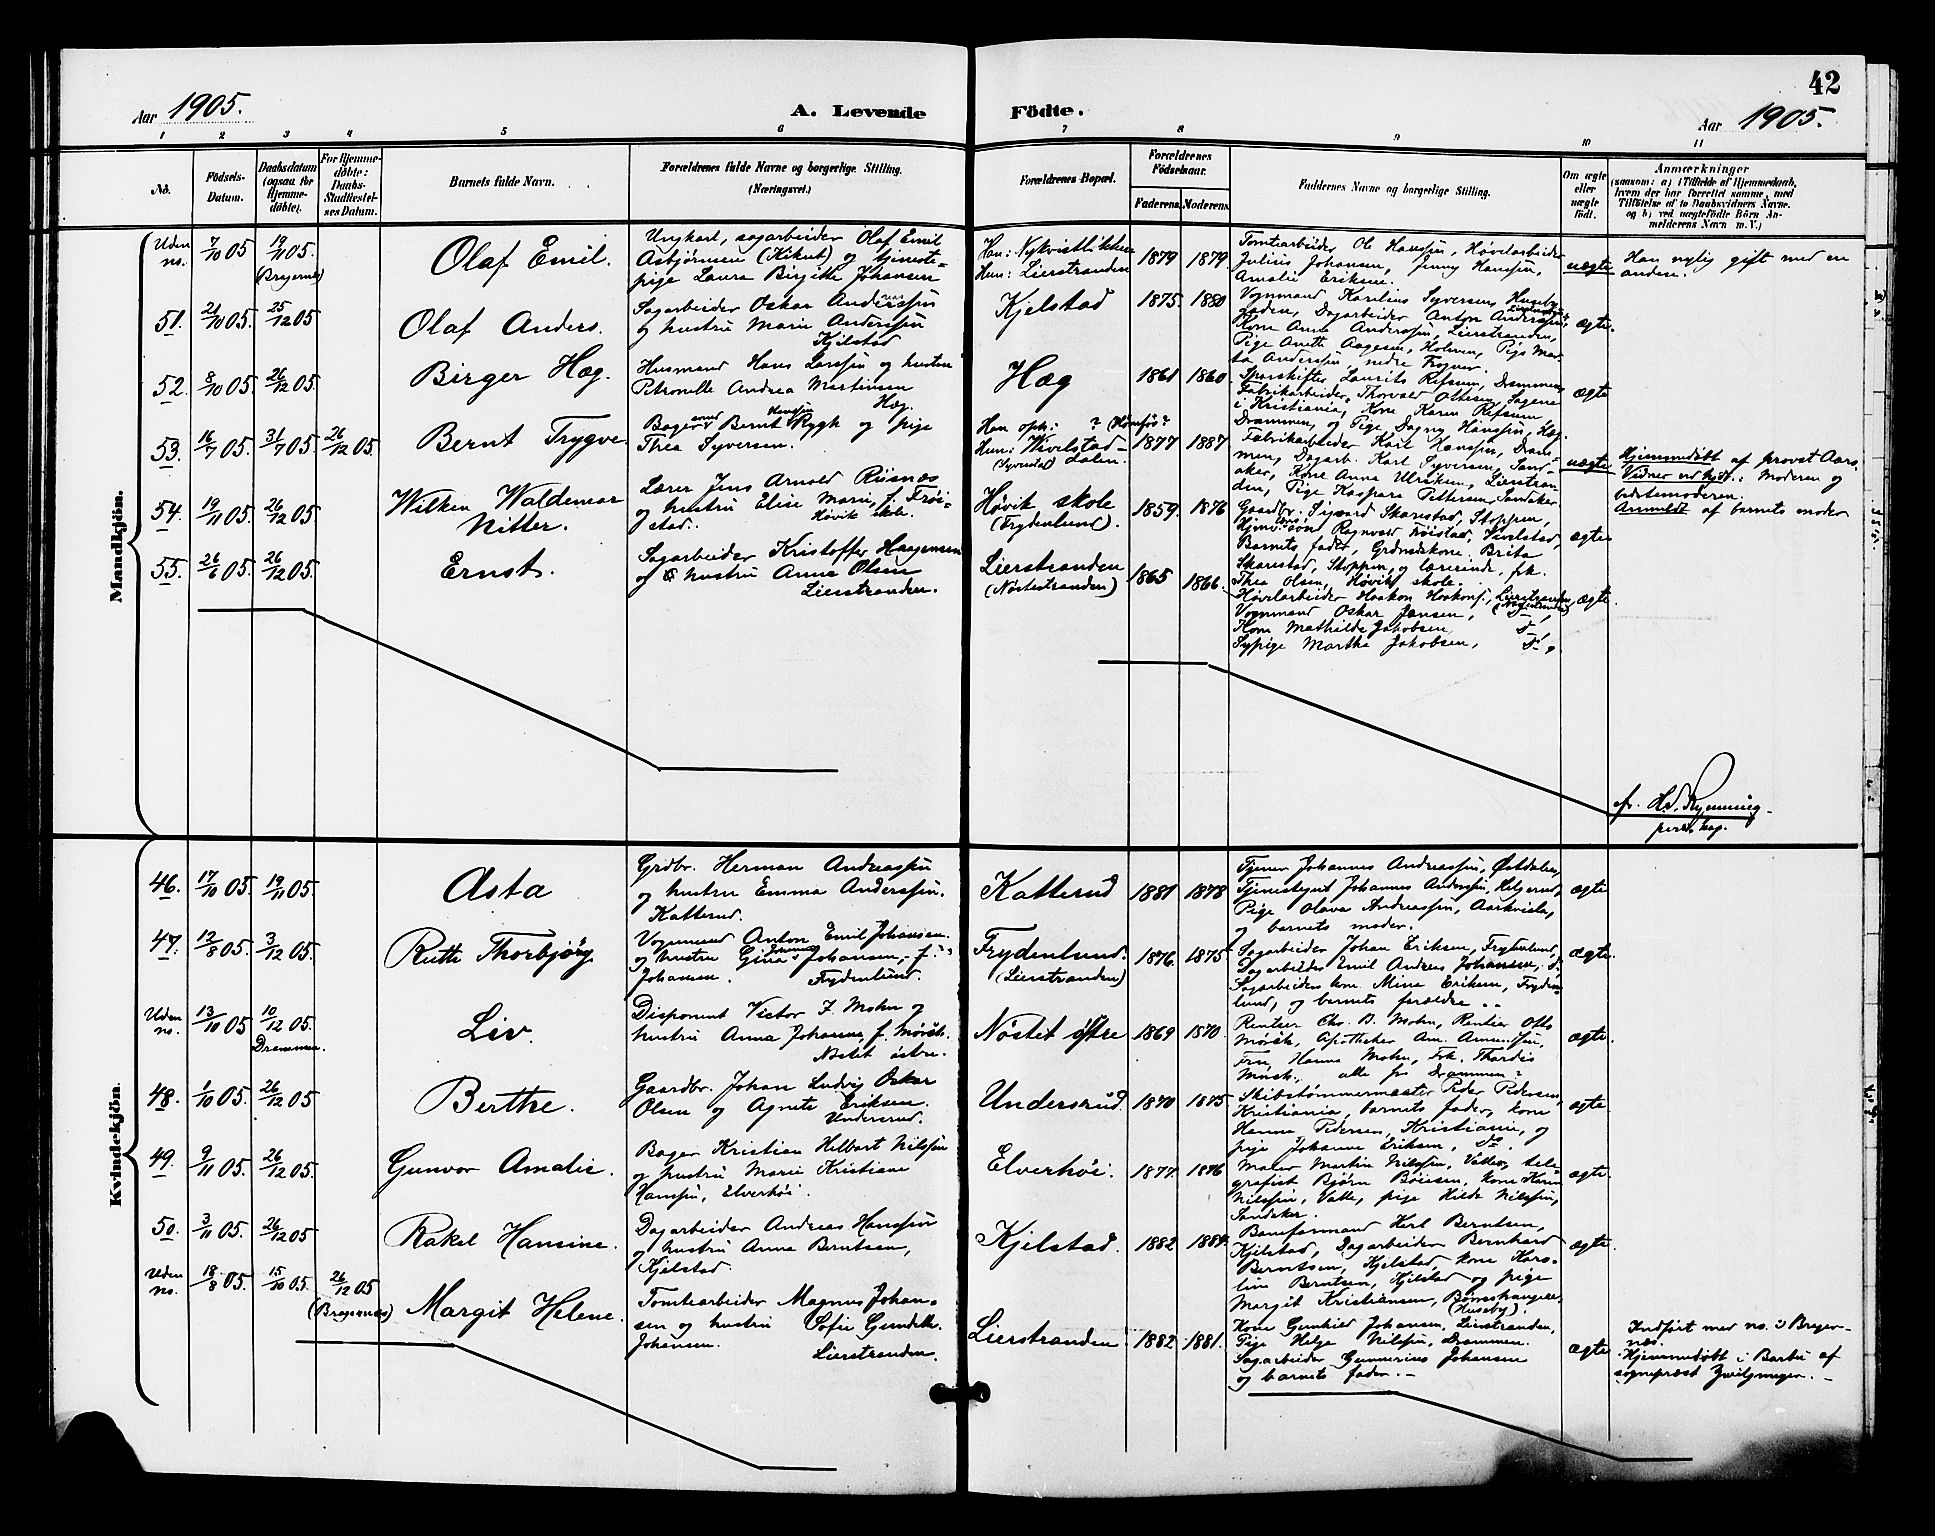 42
Aar 1905.
A. Levende
Födte.
Aar 1905.
1 2 3 4 5 6 7 8 9 10 11
No.
Födsels-
Datum.
Daabsdatum
(ogsaa for
Hjemme-
døbte).
For Hjemme-
døbte:
Daabs-
Stadfæstel-
ses Datum.
Barnets fulde Navn.
Forældrenes fulde Navne og borgerlige Stilling.
(Næringsvei.)
Forældrenes Bopæl.
Forældrenes
Födselsaar.
Faderens.
Moderens.
Faddernes Navne og borgerlige Stilling.
Om ægte
eller
uægte
født.
Anmærkninger
(saasom: a) i Tilfælde af Hjemmedaab,
hvem der har forrettet samme, med
Tilføielse af to Daabsvidners Navne.
og b) ved uægtefødte Börn An-
melderens Navn m. V.)
Mandkjön.
Uden
no.
7/10 05
19/11 05.
(Bragernes)
Olaf Emil.
Ungkarl, sagarbeider Olaf Emil
Asbjörnsen (Kikut) og tjeneste-
pige Laura Birgitte Johansen
Han: Nykvistløkken
Hun: Lierstranden
1879
1879
Tomtearbeider Ole Hanssen, Høvlarbeider
Julius Johansen, Jenny Hanssen,
Amalie Eriksen.
uægte
Han nylig gift med en
anden.
51.
21/10 05.
25/12 05
Olaf Anders.
Sagarbeider Oskar Anderssen
og hustru Marie Anderssen
Kjelstad
Kjelstad
1875.
1880
Vognmand Karelius Syversen, Huseby-
gaden, Dagarbeider Anton Anderssen,
Lierstranden,
Kone Anna Anderssen, Lierstranden,
Pige Anette Aagesen, Holmen, Pige Mar-
ta Anderssen nedre Frogner.
ægte.
52.
8/10 05
26/12 05
Birger Hæg.
Husmand Hans Larssen og hustru
Petronelle Andrea Martinsen
Hæg.
Hæg
1861
1860
Sporskifter Laurits Refsum, Drammen,
Fabrikarbeider Thorvald Ottesen, Sagene
i Kristiania, Kone Karen Refsum,
Drammen, og Pige Dagny Hanssen, Hæg.
ægte
53.
16/7 05.
31/7 05
26/12 05
Bernt Trygve
Bager Bernt Rygh og pige
Thea Syversen.
Han oph: ? (Hönefos?
Hun: Hvivelstad-
(Syverstad) dalen.
1877
1887
Fabrikarbeider Karl Hanssen, Dram-
men, Dagarb. Karl Syversen, Sand-
aker, Kone Anna Ulriksen, Lierstran-
den, Pige Kaspara Pettersen Sandaker
uægte
Hjemmedöbt af provst Aars.
Vidner ved hjdb.: Moderen og
bedstemoderen.
Anmeldt af barnets moder
54.
19/11 05
26/12 05.
Wilken Waldemar
Nitter.
Lærer Jens Arnold Riisnæs
og hustru Elise Marie, f. Frøi-
stad. Høvik skole.
Høvik skole
(Frydenlund).
1859.
1876
Gaardbr. Sigvard Skarestad, Stoppen,
Ragnvald Frøistad,
Barnets fader, Grdmdskone Brita
Skarestad, Stoppen, og lærerinde frk.
Thea Olsen, Høvik skole.
ægte
55.
26/6 05.
26/12 05.
Ernst.
Sagarbeider Kristoffer Haagensen
og hustru Anna Olsen
Lierstranden.
Lierstranden
(Nöstestranden)
1865
1866.
Høvlarbeider Haakon Haakons., Lierstranden,
(Nøstestranden)
Vognmand Oskar Jansen, do,
Kone Mathilde Jakobsen do,
Sypige Martha Jakobsen, do.
ægte.
fr. H.J. Rynning
pers. kap.
Kvindekjön.
46.
17/10 05
19/11 05.
Asta
Grdbr. Herman Andreassen
og hustru Emma Anderssen.
Katterud.
Katterud
1881
1878
Tjener Johannes Andreassen, Østdalen,
Tjenestegut Johannes Anderssen, Helgerud,
Pige Olava Andreassen, Aarkvisla,
og barnets moder.
ægte
47.
12/8 05.
3/12 05.
Ruth Thorbjörg
Vognmand Anton Emil Johansen
og hustru Gina Johansen, f.
Johansen. Frydenlund.
Frydenlund.
(Lierstranden)
1876.
1875
Sagarbeider Johan Eriksen, Frydenlund,
Sagarbeider Emil Andreas Johansen, do,
Sagarbeiders kone Mina Eriksen, Fryden-
lund, og barnets forældre
ægte.
Uden
no.
13/10 05
10/12 05.
Drammen.
Liv.
Disponent Victor F Mohn og
hustru Anna Johanne, f. Mørch.
Nøstet östre.
Nöstet östre
1869
1870.
Rentier Chr. B. Mohn, Rentier Otto
Mørch, Apotheker Am. Amundsen,
Fru Hanna Mohn, Frk. Thordis
Mørch, alle fr. Drammen.
ægte.
48.
1/10 05.
26/12 05
Berthe.
Gaardbr. Johan Ludvig Oskar
Olsen og Agnete Eriksen.
Undersrud.
Undersrud.
1870
1875
Skibstømmermester Peder Pedersen,
Kristiania, barnets fader, kone
Hanna Pedersen, Kristiania, og
pige Johanne Eriksen, do
ægte
49.
9/11 05.
26/12 05.
Gunvor Amalie.
Bager Kristian Helbert Nilssen
og hustru Marie Kristiane
Hanssen, Elverhöi.
Elverhöi.
1877.
1876
Maler Martin Nilssen, Valle, tele-
grafist Björn Böiesen, kone Karen
Nilssen, Valle, pige Hilda Nilssen,
Sandaker.
ægte.
50.
3/11 05.
26/12 05
Rakel Hansine.
Dagarbeider Andreas Hanssen
og hustru Anna Berntsen,
Kjelstad.
Kjelstad.
1882
1884.
Baneformand Karl Berntsen,
Kjelstad, Dagarbeider Bernhard
Berntsen, Kjelstad, kone Karo-
line Berntsen, Kjelstad og pige
Margit Kristiansen,
(Huseby).
ægte.
Uden
no.
18/8 05.
15/10 05.
26/12 05
(Bragernæs)
Margit Helene.
Tomtearbeider Magnus Johan-
sen og hustru Sofie
Johansen. Lierstranden.
Lierstranden
1882
1881.
Kone Gunhild Johansen, Lierstranden,
Pige Helga Nilssen, Drammen.
Sagarbeider Gunnerius Johansen
og barnets fader.
ægte
Indført med no. i Brager-
næs.
Hjemmedöbt i Barbu af
sogneprest Zwilgmeyer.